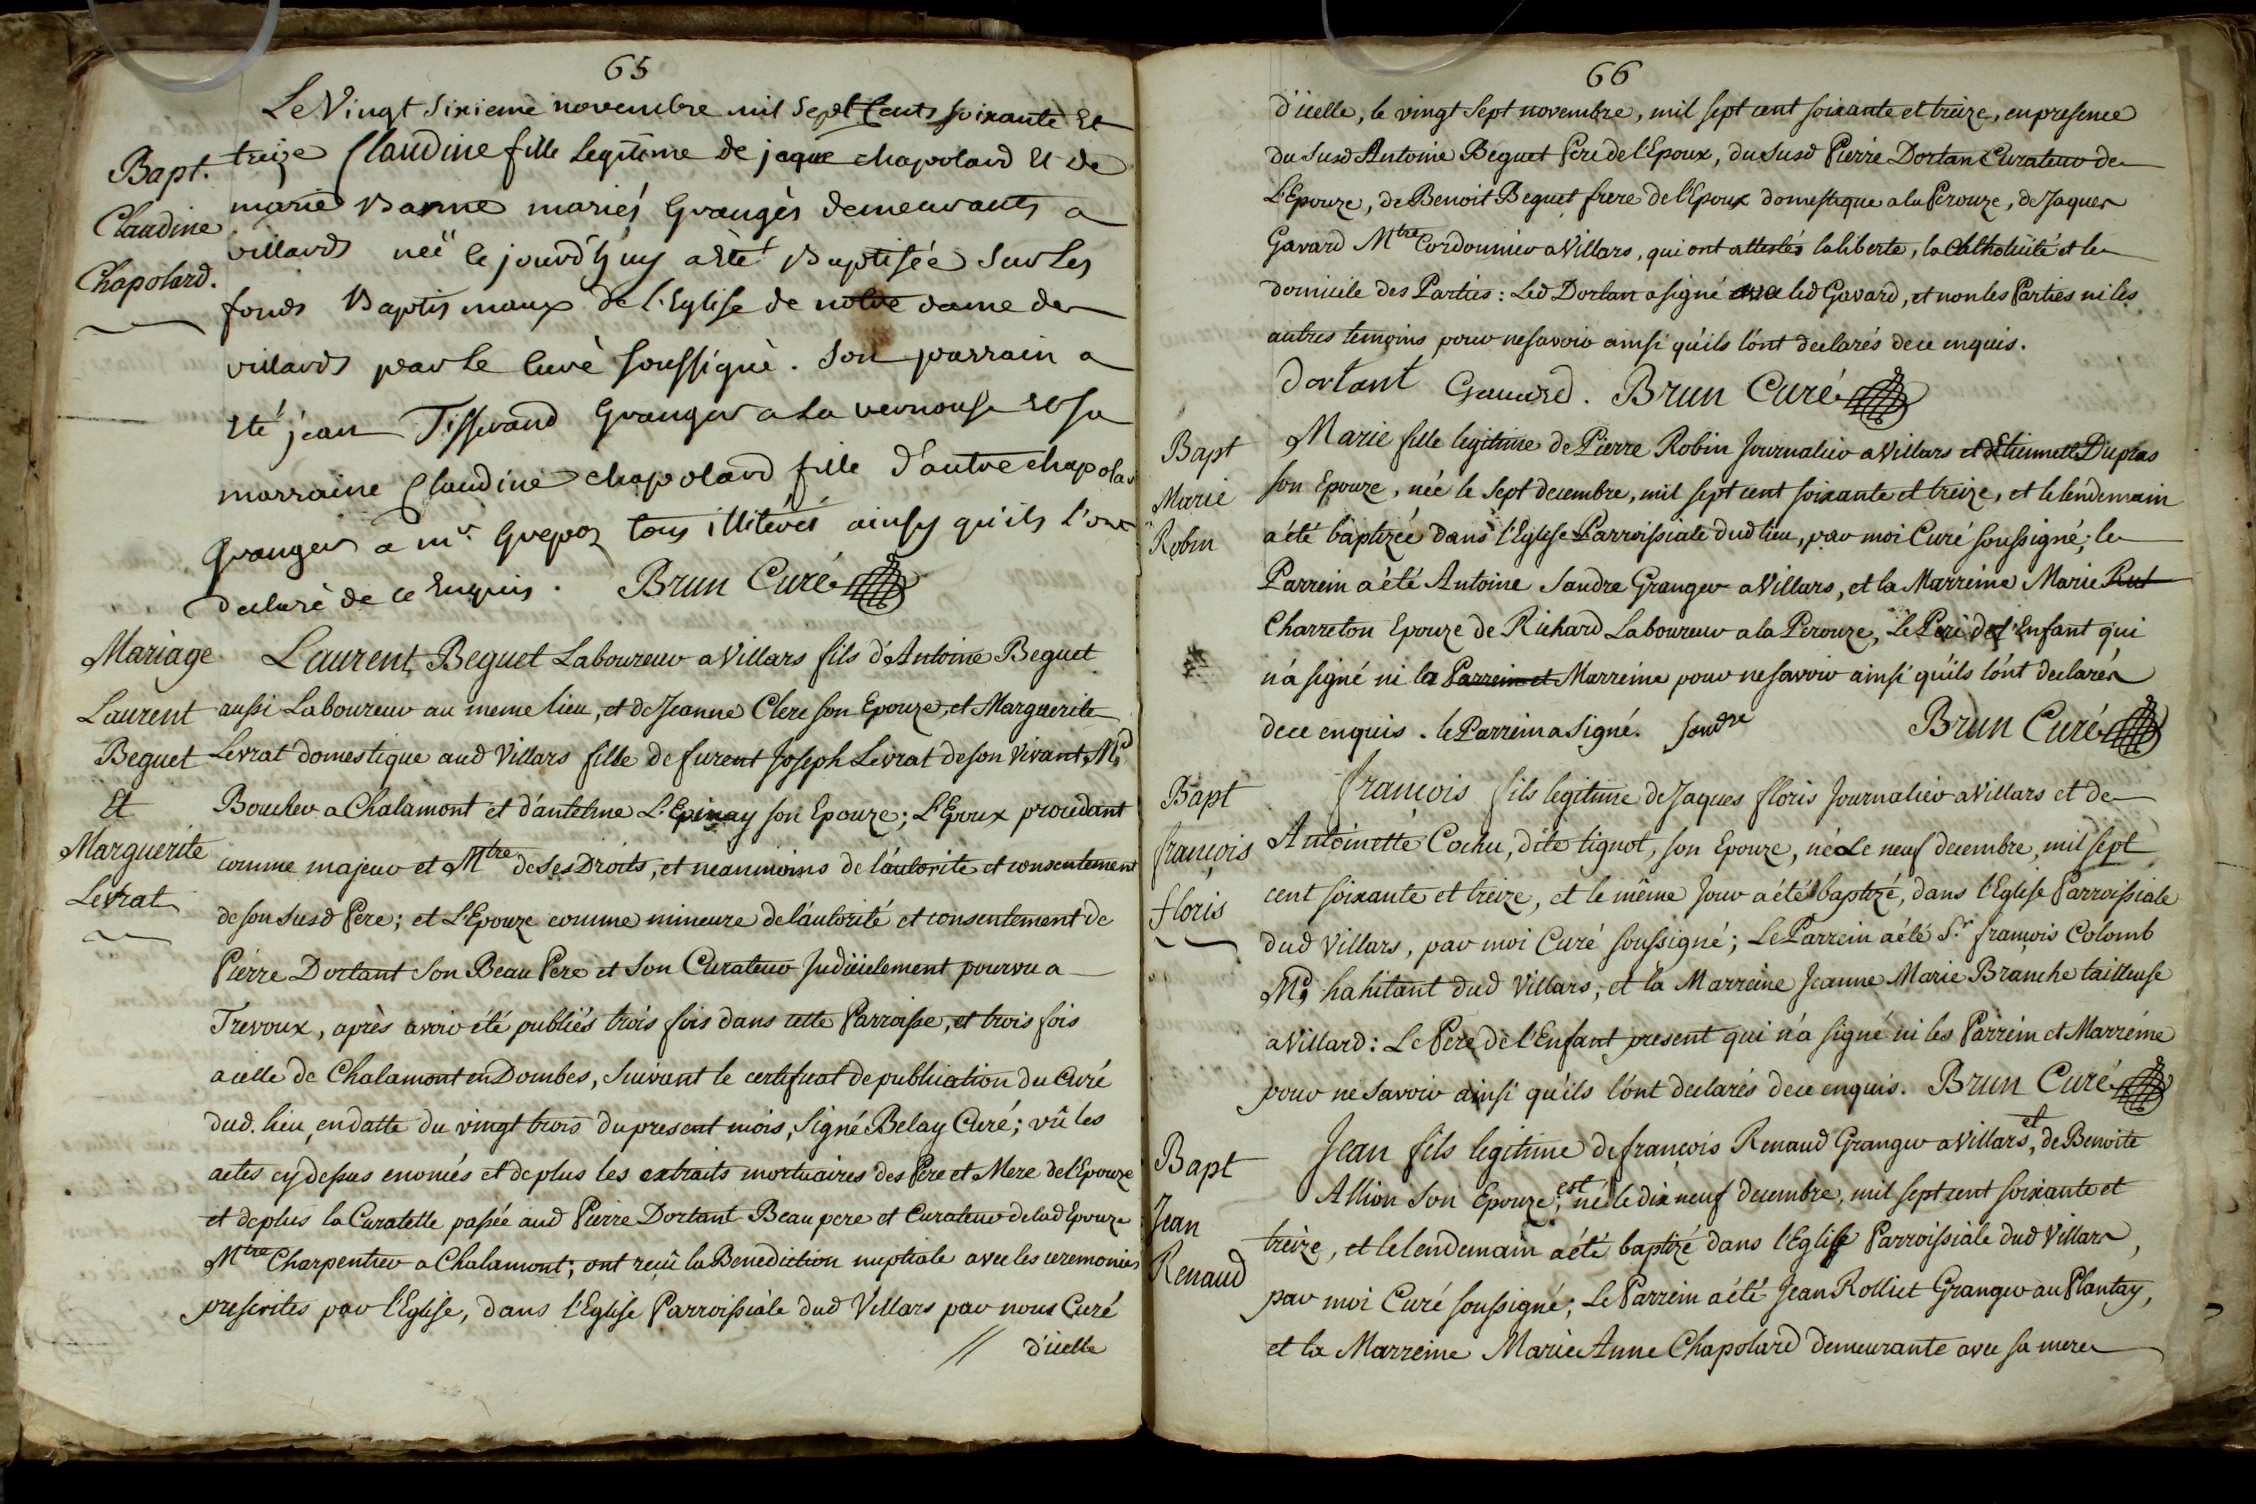 65
Le Vingt Sixieme novembre mil Sept Cents soixante Et
Bapt.
Claudine
Chapolard.
treize Claudine fille Legitime de jaque chapolard Et de
marie Banne mariés Grangèrs demeurants a
villards neé le jourd'huy a Eté Baptisée Sur Les
fonds Baptismaux de l'Eglise de notre dame de
villards par Le Curé soussigné. Son parrain a
Eté jean Tisserand Granger a La vernouse et sa
marraine Claudine chapolard fille d'autre chapolar
Granger a mr. Grepoz tous illiterés ainsy qu'ils l'ont
declaré de ce Enquis. Brun Curé
Mariage
Laurent
Beguet
Et
Marguerite
Levrat
Laurent Beguet Laboureur a Villars fils d'Antoine Beguet
aussi Laboureur au meme lieu, et de Jeanne Clere son Epouze, et Marguerite
Levrat domestique aud Villars fille de furent Joseph Levrat de son vivant Md
Boucher a Chalamont et d'antelme L'Epinay son Epouze; L'Epoux procedant
comme majeur et Mtre de ses Droits, et neanmoins de l'autorité et consentement
de son susd Pere; et L'Epouze comme mineure de l'autorité et consentement de
Pierre Dortant Son Beau Pere et Son Curateur Judicielement pourvu a
Trevoux, après avoir été publiés trois fois dans cette Parroisse, et trois fois
a celle de Chalamont en Dombes, suivant le certificat de publication du Curé
dud. lieu, en datte du vingt trois du present mois, Signé Belay Curé; vû les
actes cy dessus enoncés et de plus les extraits mortuaires des Pere et Mere de l'Epouze
et de plus la Curatelle passée aud Pierre Dortant Beau pere et Curateur de lad Epouze
Mtre Charpentier a Chalamont; ont reçu la Benediction nuptiale avec les ceremonies
prescrites par l'Eglise, dans l'Eglise Parroissiale dud Villars par nous Curé
// d'icelle
66
d'icelle, le vingt Sept novembre, mil sept cent soixante et treize, en presence
du Susd Antoine Beguet Pere de l'Epoux, du susd Pierre Dortan Curateur de
L'Epouze, de Benoit Beguet frere de l'Epoux domestique a la Perouze, de Jaques
Gavard Mtre Cordonnier a Villars, qui ont attestés la liberte, la Catholicité et le
domicile des Parties: Led Dortan a signé avec led Gavard, et non les Parties ni les
autres temoins pour ne savoir ainsi qu'ils l'ont declarés de ce enquis.
Dortant Gavard. Brun Curé
Bapt
Marie
Robin
Marie fille legitime de Pierre Robin Journalier a Villars et d'Etiennette Dupras
son Epouze, née le Sept decembre, mil sept cent soixante et treize, et le lendemain
a été baptizée dans l'Eglise Parroissiale dud lieu, par moi Curé soussigné; le
Parrein a été Antoine Sandre Granger a Villars, et la Marreine Marie
Charreton Epouze de Richard Laboureur a la Perouze, Le Pere de l'Enfant qui
n'a signé ni la Parrein et Marreine pour ne savoir ainsi qu'ils l'ont declarés
de ce enquis. le Parrein a Signé. Sandre Brun Curé
Bapt
françois
floris
françois fils legitime de Jaques floris Journalier a Villars et de
Antoinette Cochu, dite tignot, son Epouze, né Le neuf decembre, mil sept
cent soixante et treize, et le même Jour a été baptizé, dans l'Eglise Parroissiale
dud Villars, par moi Curé soussigné; Le Parrein a été Sr. françois Colomb
Md habitant dud Villars, et la Marreine Jeanne Marie Branche tailleuse
a Villard: Le Pere de l'Enfant present qui n'a signé ni les Parrein et Marreine
pour ne savoir ainsi qu'ils l'ont declarés de ce enquis. Brun Curé
Bapt
Jean
Renaud
Jean fils legitime de françois Renaud Granger a Villars, et de Benoite
Allion Son Epouze, est né le dix neuf decembre, mil sept cent soixante et
treize, et le lendemain a été baptizé dans l'Eglise Parroissiale dud Villars,
par moi Curé soussigné; Le Parrein a été Jean Rolliet Granger au Plantay,
et la Marreine Marie Anne Chapolard demeurante avec sa mere